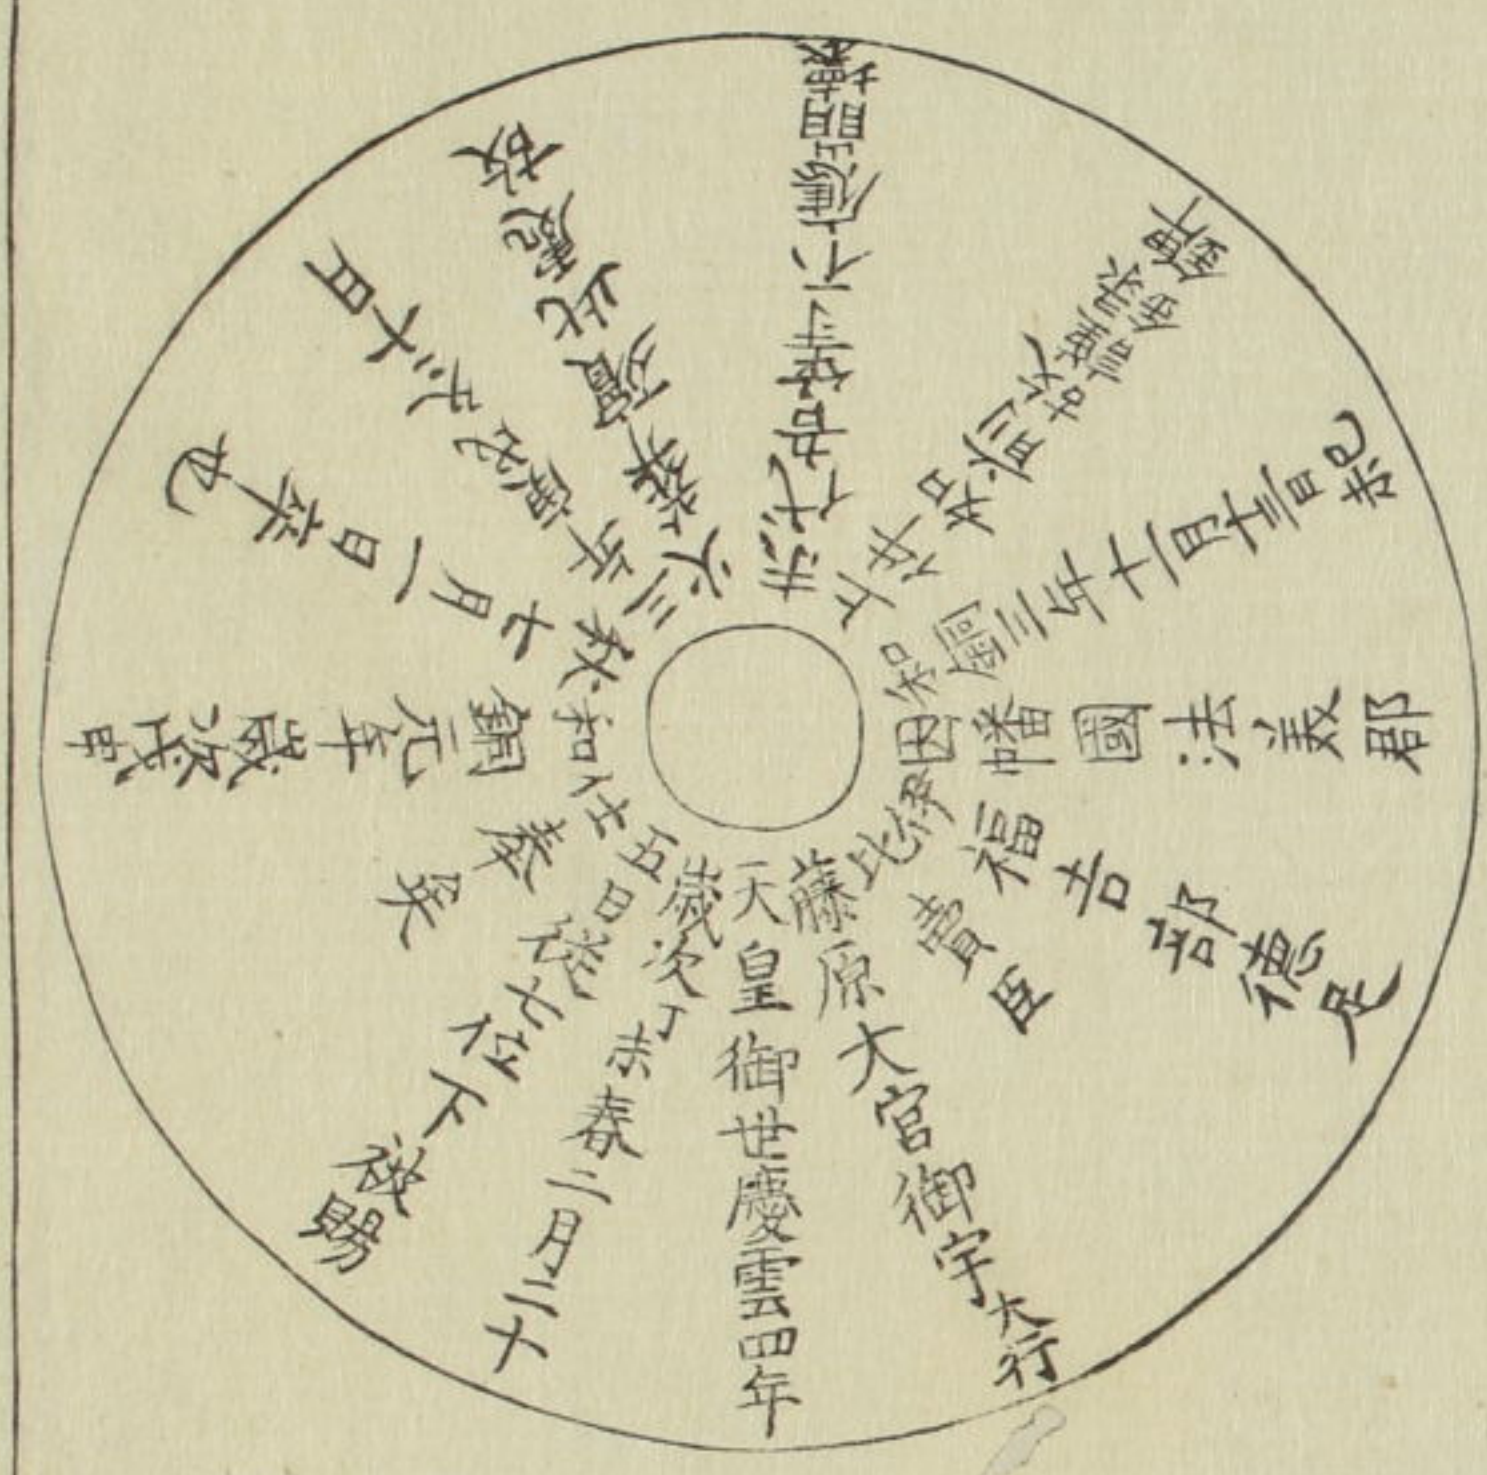 因幡國法美郡
伊福吉部德足
比賣臣
藤原大官御宇大行
天皇御世慶雲四年
歲次丁未春二月二十
五日從七位下被賜
仕奉矣
和銅元年歲次戊申
秋七月一日卒也
三年庚戌冬十月
火葬殯此處故
末代君等不應崩壞
上件如前故謹錄錍
和銅三年十一月十三日記